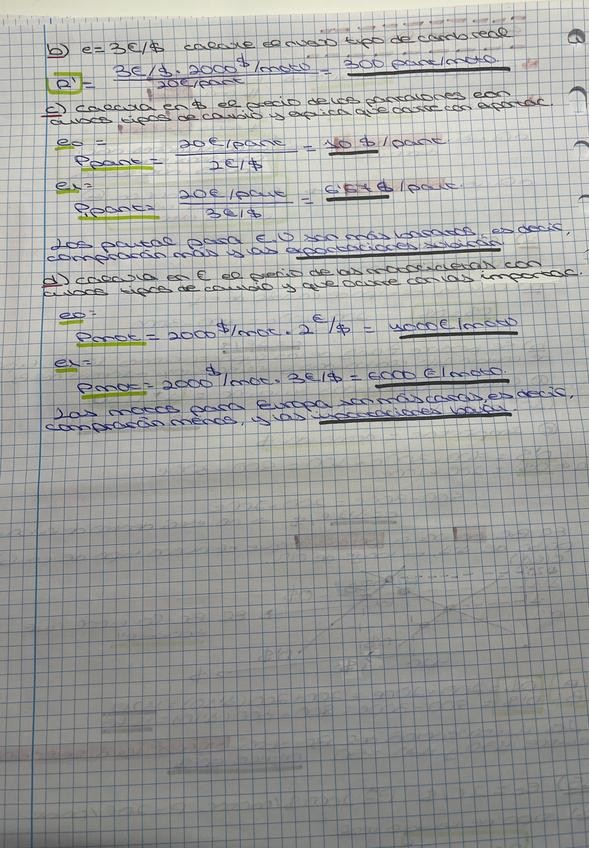 b) e = 3€/$ calcule el nuevo tipo de cambio real
R' = 3€/$ · 2000$/moto / 20€/pant = 300 pant/moto
c) calcula en $ el precio de los pantalones con
ambos tipos de cambio y explica que ocurre con aportac.
e0 =
Ppant = 20€/pant / 2€/$ = 10 $/pant.
e1 =
Ppant = 20€/pant / 3€/$ = $/pant.
Los pantal para EU son más baratos, es decir,
comprarán más y las exportaciones subirán
d) calcula en € el precio de las motocicletas con
ambos tipos de cambio y que ocurre con las importac.
e0 =
Pmot = 2000$/mot · 2€/$ = 4000€/moto
e1 =
Pmot = 2000$/mot · 3€/$ = 6000€/moto.
Las motos para Europa son más caras, es decir,
comprarán menos, y las importaciones bajan